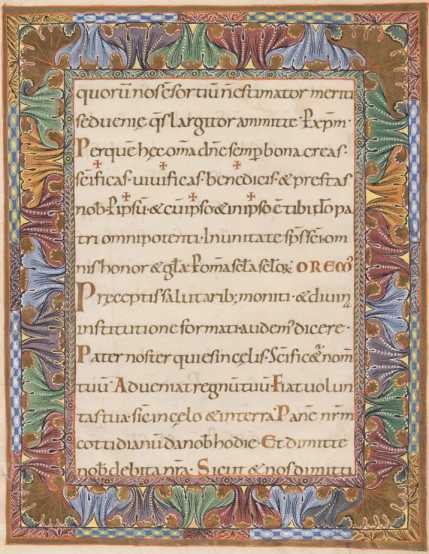 quorū nos c̄sortiū n̄estimator meriti
sed veniȩ qs largitor ammitte · P xp̄m ·
Per quē hȩc om̄a dn̄e semp bona creas ·
sc̄ificas · vivificas · benedicis · & prestas
nob · P ipsū · & cū ipso & in ipso · ē tibi do pa
tri omnipotenti · In unitate sp̄s sc̄i om
nis honor & gl̄a · P om̄a scl̄a scl̄oꝝ OREMꝰ
Prȩceptis salutarib; moniti · & divin
institutione formati audemꝰ dicere ·
Pater noster qui es in cȩlis · Sc̄ificȩ nom̄
tuū · Adveniat regnū tuū · Fiat volun
tas tua · sic̄ in cȩlo & in terra · Panē nr̄m
cottidianū da nob hodie · Et dimitte
nob debita nr̄a · Sicut & nos dimitti